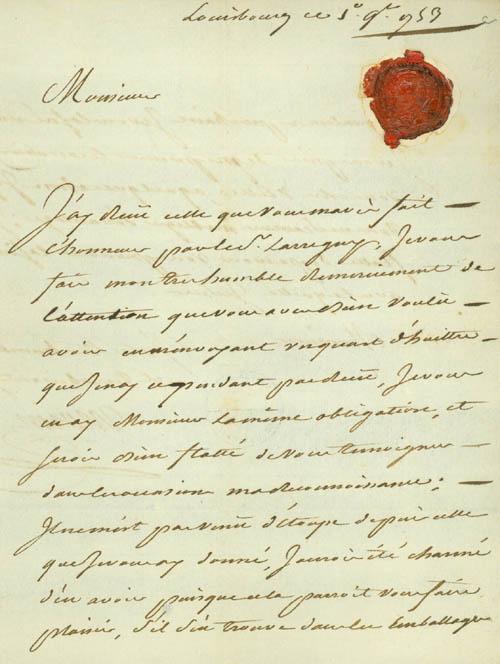 Louisbourg ce 1er 9bre 1753
Monsieur
J'ay Reçû celle que vous m'avés fait
L'honneur par le Sr. Larreguy, Je vous
fais mon tres humble Remerciement de
l'attention que vous avés bien voulû
avoir en m'envoyant un quart d'huittre
que Je n'ay cependant pas Reçû, Je vous
en ay Monsieur La même obligation, et
serois bien flatté de vous temoigner
dans les occasions ma Reconnoissance;
Il ne m'est pas venû d'étoupe depuis celle
que Je vous ay donné, J'aurois été charmé
d'en avoir puisque cela paroit vous faire
plaisir, s'il s'en trouve dans les Emballages